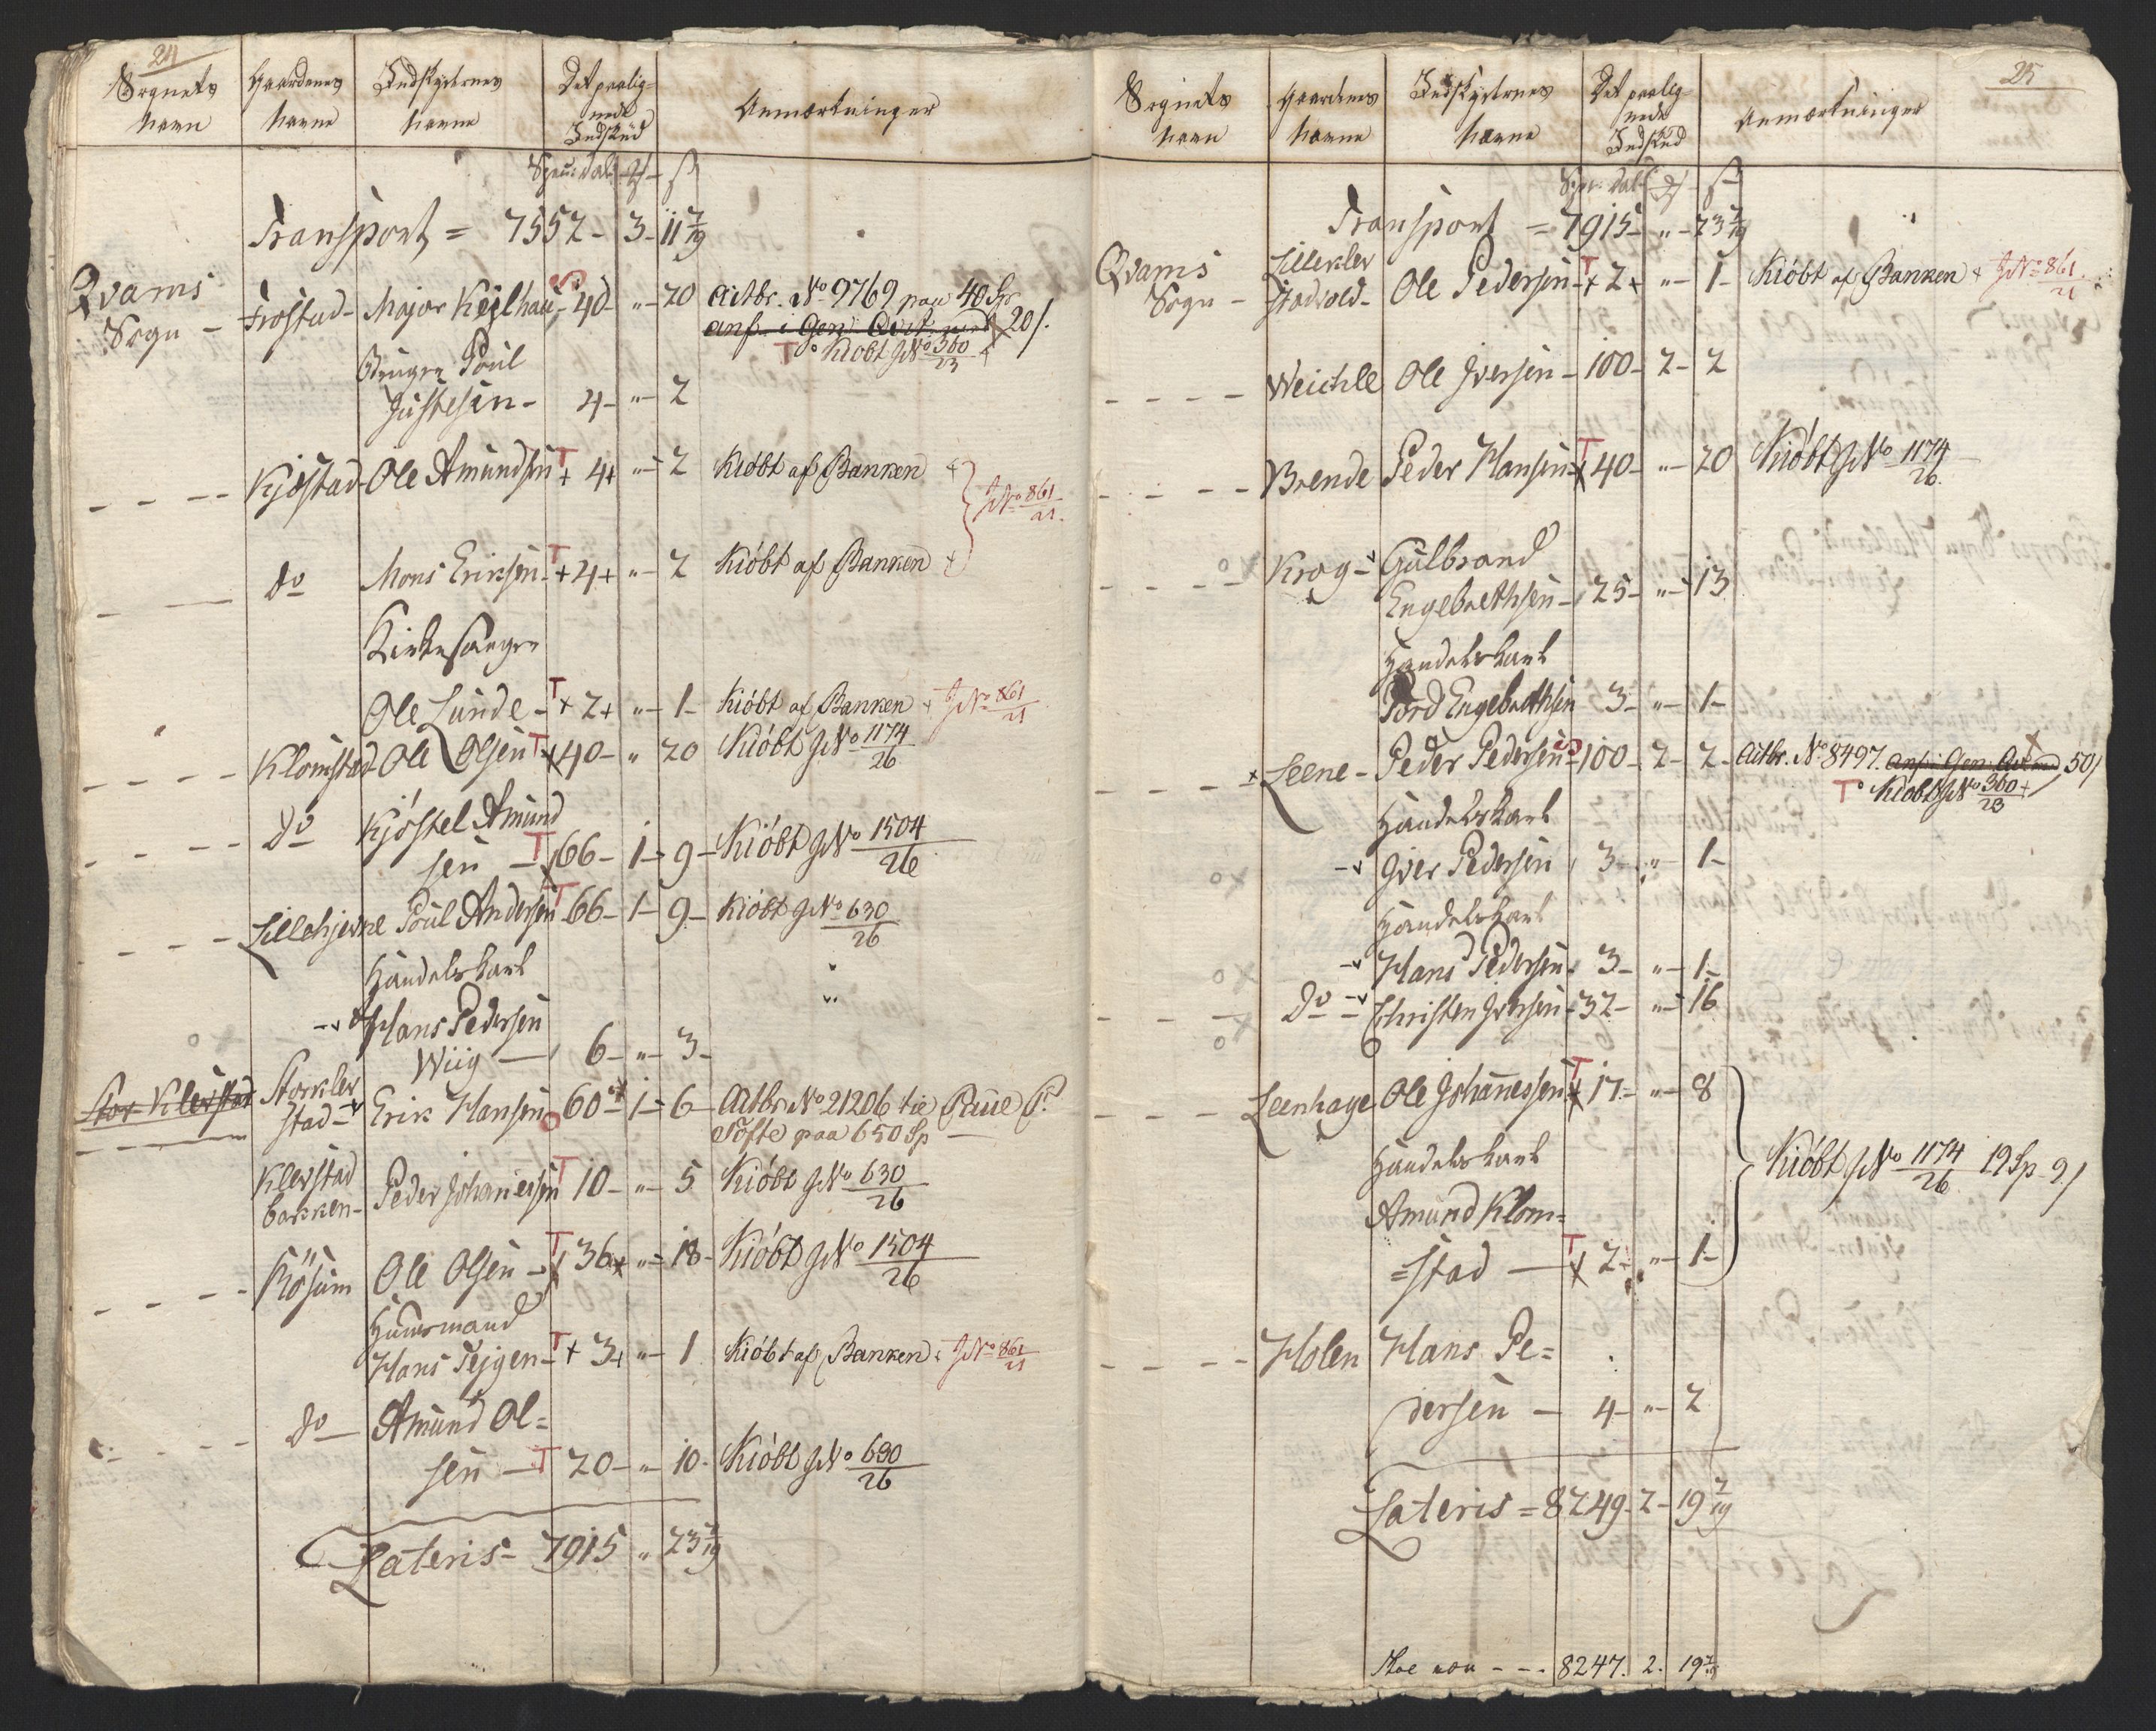 24
Sognets Navn | Gaardenes Navne | Indskydernes Navne | Det paalignede Indskud | Anmærkninger
Transport = 7552 - 3 - 11 7/19
Qvams Sogn - Frostad - Major Keÿlhau - 40 - " - 20 Actbr. No 9769 paa 40 Sp
20 ß.
T Kiöbt JNo 360/23
Bruger Poul
Justesen - 4 - " - 2
Kjöstad - Ole Amundsen T + 4 + " - 2 Kiöbt af Banken + JNo 861/21
do Mons Eriksen - T + 4 + " - 2 Kiöbt af Banken +
Kirkesanger
Ole Lunde - T + 2 + " - 1 - Kiöbt af Banken + JNo 861/21
Klomstad - Ole Olsen T + 40 - " 20 Kiöbt JNo 1174/26
do Kjöstel Amund
sen - T 66 - 1 - 9 - Kiöbt JNo 1504/26
Lillehjerne Poul Andersen T 66 - 1 - 9 - Kiöbt JNo 630/26
Handelskarl
Hans Pedersen
Wiig - 6 - " - 3 -
Stor Klevstad Storklev
stad - Erik Hansen 60 - 1 - 6 - Actbr No 21206 til Paul P.
Tofte paa 650 Sp -
Klevstad
bakken - Peder Johannesen T 10 - " - 5 Kiöbt JNo 630/26
Rösum Ole Olsen - T 36 + " - 18 - Kiöbt JNo 1504/26
Huusmand
Hans Tejgen - T + 3 + " - 1 Kiöbt af Banken + JNo 861/21
do - Amund Ol=
sen - T 20 - " - 10 - Kiöbt JNo 630/26
Lateris - 7915 " 23 7/19
25
Sognets Navn | Gaardenes Navne | Indskydernes Navne | Det paalignede Indskud | Anmærkninger
Transport = 7915 - " - 23 7/19
Qvams Sogn - Lilleklev
stadvold - Ole Pedersen - T + 2 + " - 1 - Kiöbt af Banken + JNo 861/21
Weichle Ole Iversen - 100 - 2 - 2
Brende Peder Hansen - T 40 - " - 20 Kiöbt JNo 1174/26
Krog - Gulbrand
Engebrethsen - 25 - " - 13
Handelskarl
Pord Engebrethsen 3 - " - 1 -
Leene - Peder Pedersen - 100 - 2 - 2 - Actbr. No 8497. 50 ß
T Kiöbt JNo 360/23
Handelskarl
Iver Pedersen 3 - " - 1 -
Handelskarl
Hans Pedersen - 3 - " - 1 -
do - Christen Iversen - 32 - " - 16
Leenhage Ole Johannessen T 17 - " - 8
Handelskarl
Amund Klom=
=stad - T 2 - " - 1 -
Kiöbt JNo 1174/26 19 Sp - 9 ß
Holen Hans Pe=
dersen - 4 - " - 2
Lateris = 8249 - 2 - 19 7/19
8247. 2. 19 7/19